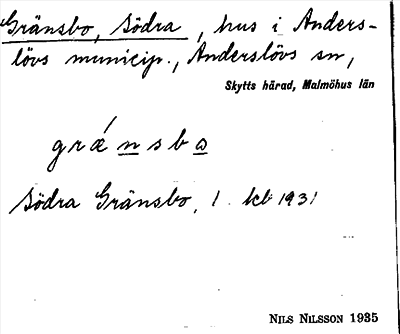 Gränsbo, Södra, hus i Anders-
lövs municip., Anderslövs sn,
Skytts härad, Malmöhus län
grǽnsbω
Södra Gränsbo, 1. kbl 1931
NILS NILSSON 1935